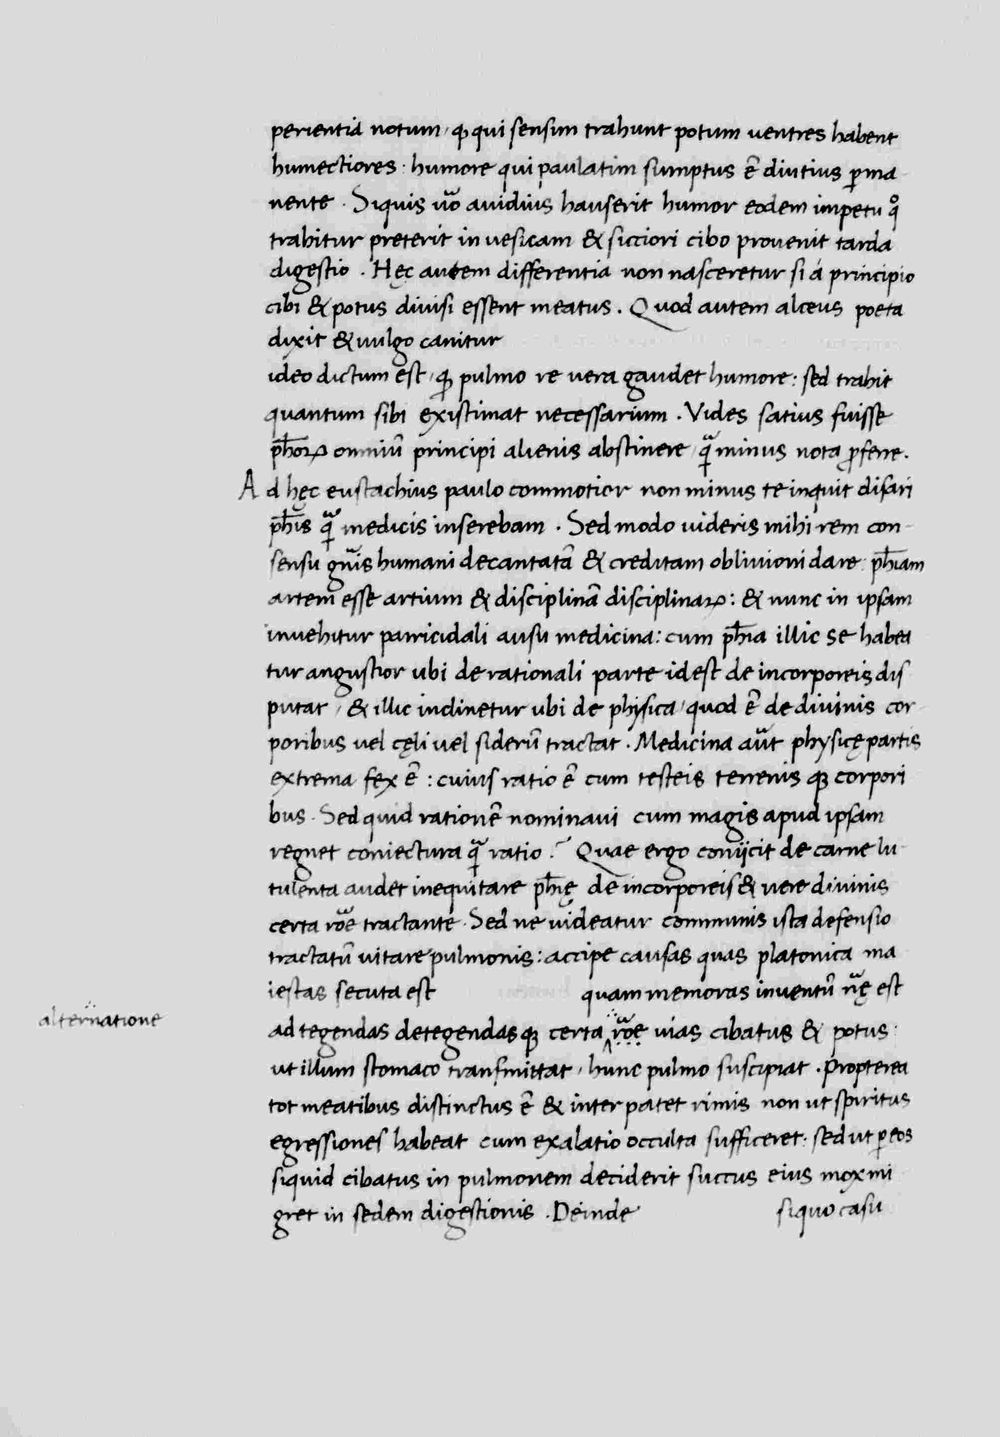 perientia notum, ꝙ qui sensim trahunt potum ventres habent
humectiores: humore qui paulatim sumptus ē diutius ꝑma-
nente. Siquis ũo auidius hauserit humor eodem impetu qͦ
trahitur preterit in uesicam & sicciori cibo prouenit tarda
digestio. Hęc autem differentia non nasceretur si á principio
cibi & potus diuisi essent meatus. Quod autem alceus poeta
dixit & uulgo canitur
ideo dictum est, ꝙ pulmo re vera gaudet humore: sed trahit
quantum sibi existimat necessarium. Vides satius fuisse
ph̄oꝝ omniū principi alienis abstinere, q̃ minus nota ꝓferre.
Ad hęc eustachius paulo commotior non minus te inquit disari
ph̄is q̃ medicis inserebam. Sed modo uideris mihi rem con-
sensu gñis humani decantatā & creditam obliuioni dare: ph̄iam
artem esse artium & disciplinā disciplinaꝝ: & nunc in ipsam
inuehitur parricidali ausu medicina: cum ph̄ia illic se habea
tur angustior ubi de rationali parte idest de incorporeis dis
putat, & illic inclinetur ubi de physica, quod ē de diuinis cor-
poribus vel cęli vel siderū tractat. Medicina aũt physicę partis
extrema fex ē: cuius ratio ē cum testeis terrenis qꝫ corpori
bus. Sed quid rationē nominaui cum magis apud ipsam
regnet coniectura q̃ ratio? Quae ergo coniicit de carne lu-
tulenta audet inequitare ph̄ię de incorporeis & vere diuinis
certa rõe tractante. Sed ne uideatur communis ista defensio
tractatū vitare pulmonis: accipe causas quas platonica ma
iestas secuta est quam memoras inuentū nr̃ę est
alternatione
ad tegendas detegendasqꝫ certa rõe vias cibatus & potus:
ut illum stomaco transmittat, hunc pulmo suscipiat. Propterea
tot meatibus distinctus ē & inter patet rimis non ut spiritus
egressiones habeat cum exalatio occulta sufficeret: sed ut ꝑ eos
siquid cibatus in pulmonem deciderit succus eius mox mi
gret in sedem digestionis. Deinde si quo casu